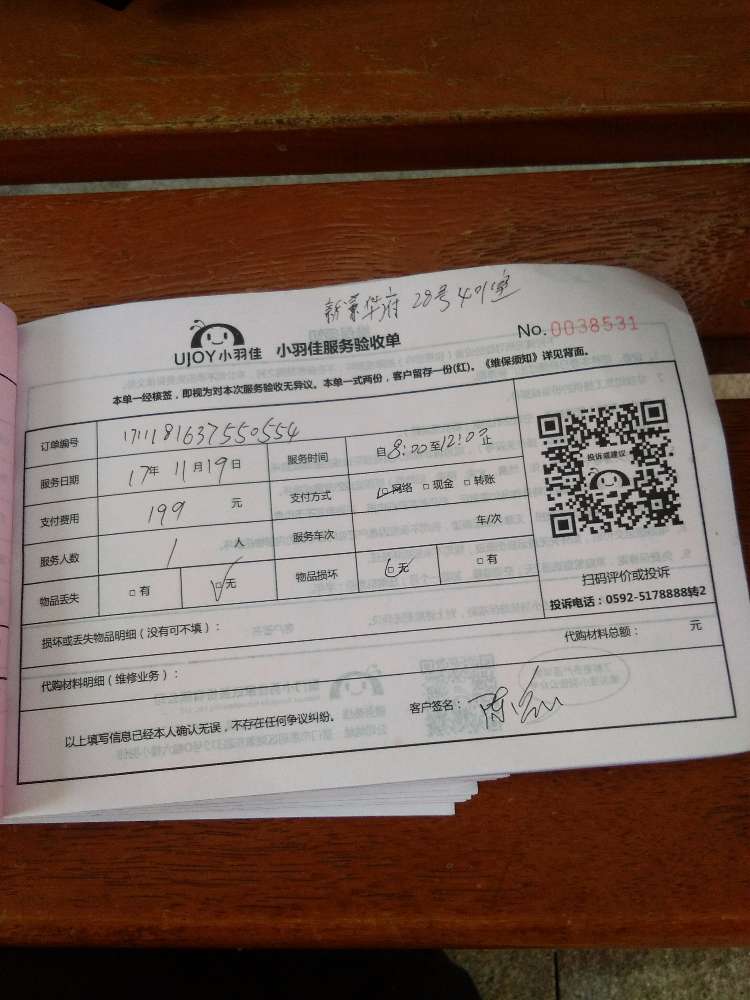 新景华府 28号401室
UJOY小羽佳 小羽佳服务验收单 No.0038531
本单一经核签，即视为对本次服务验收无异议。本单一式两份，客户留存一份(红)。《维保须知》详见背面。
订单编号 1711181637550554
服务日期 17年 11月19日 服务时间 自8:00至12:00止
支付费用 199 元 支付方式 ☑网络 □现金 □转账
服务人数 1 人 服务车次 车/次
物品丢失 □有 ☑无 物品损坏 ☑无 □有
投诉或建议
扫码评价或投诉
投诉电话：0592-5178888转2
损坏或丢失物品明细（没有可不填）：
代购材料明细（维修业务）： 代购材料总额： 元
以上填写信息已经本人确认无误，不存在任何争议纠纷。 客户签名： 陈